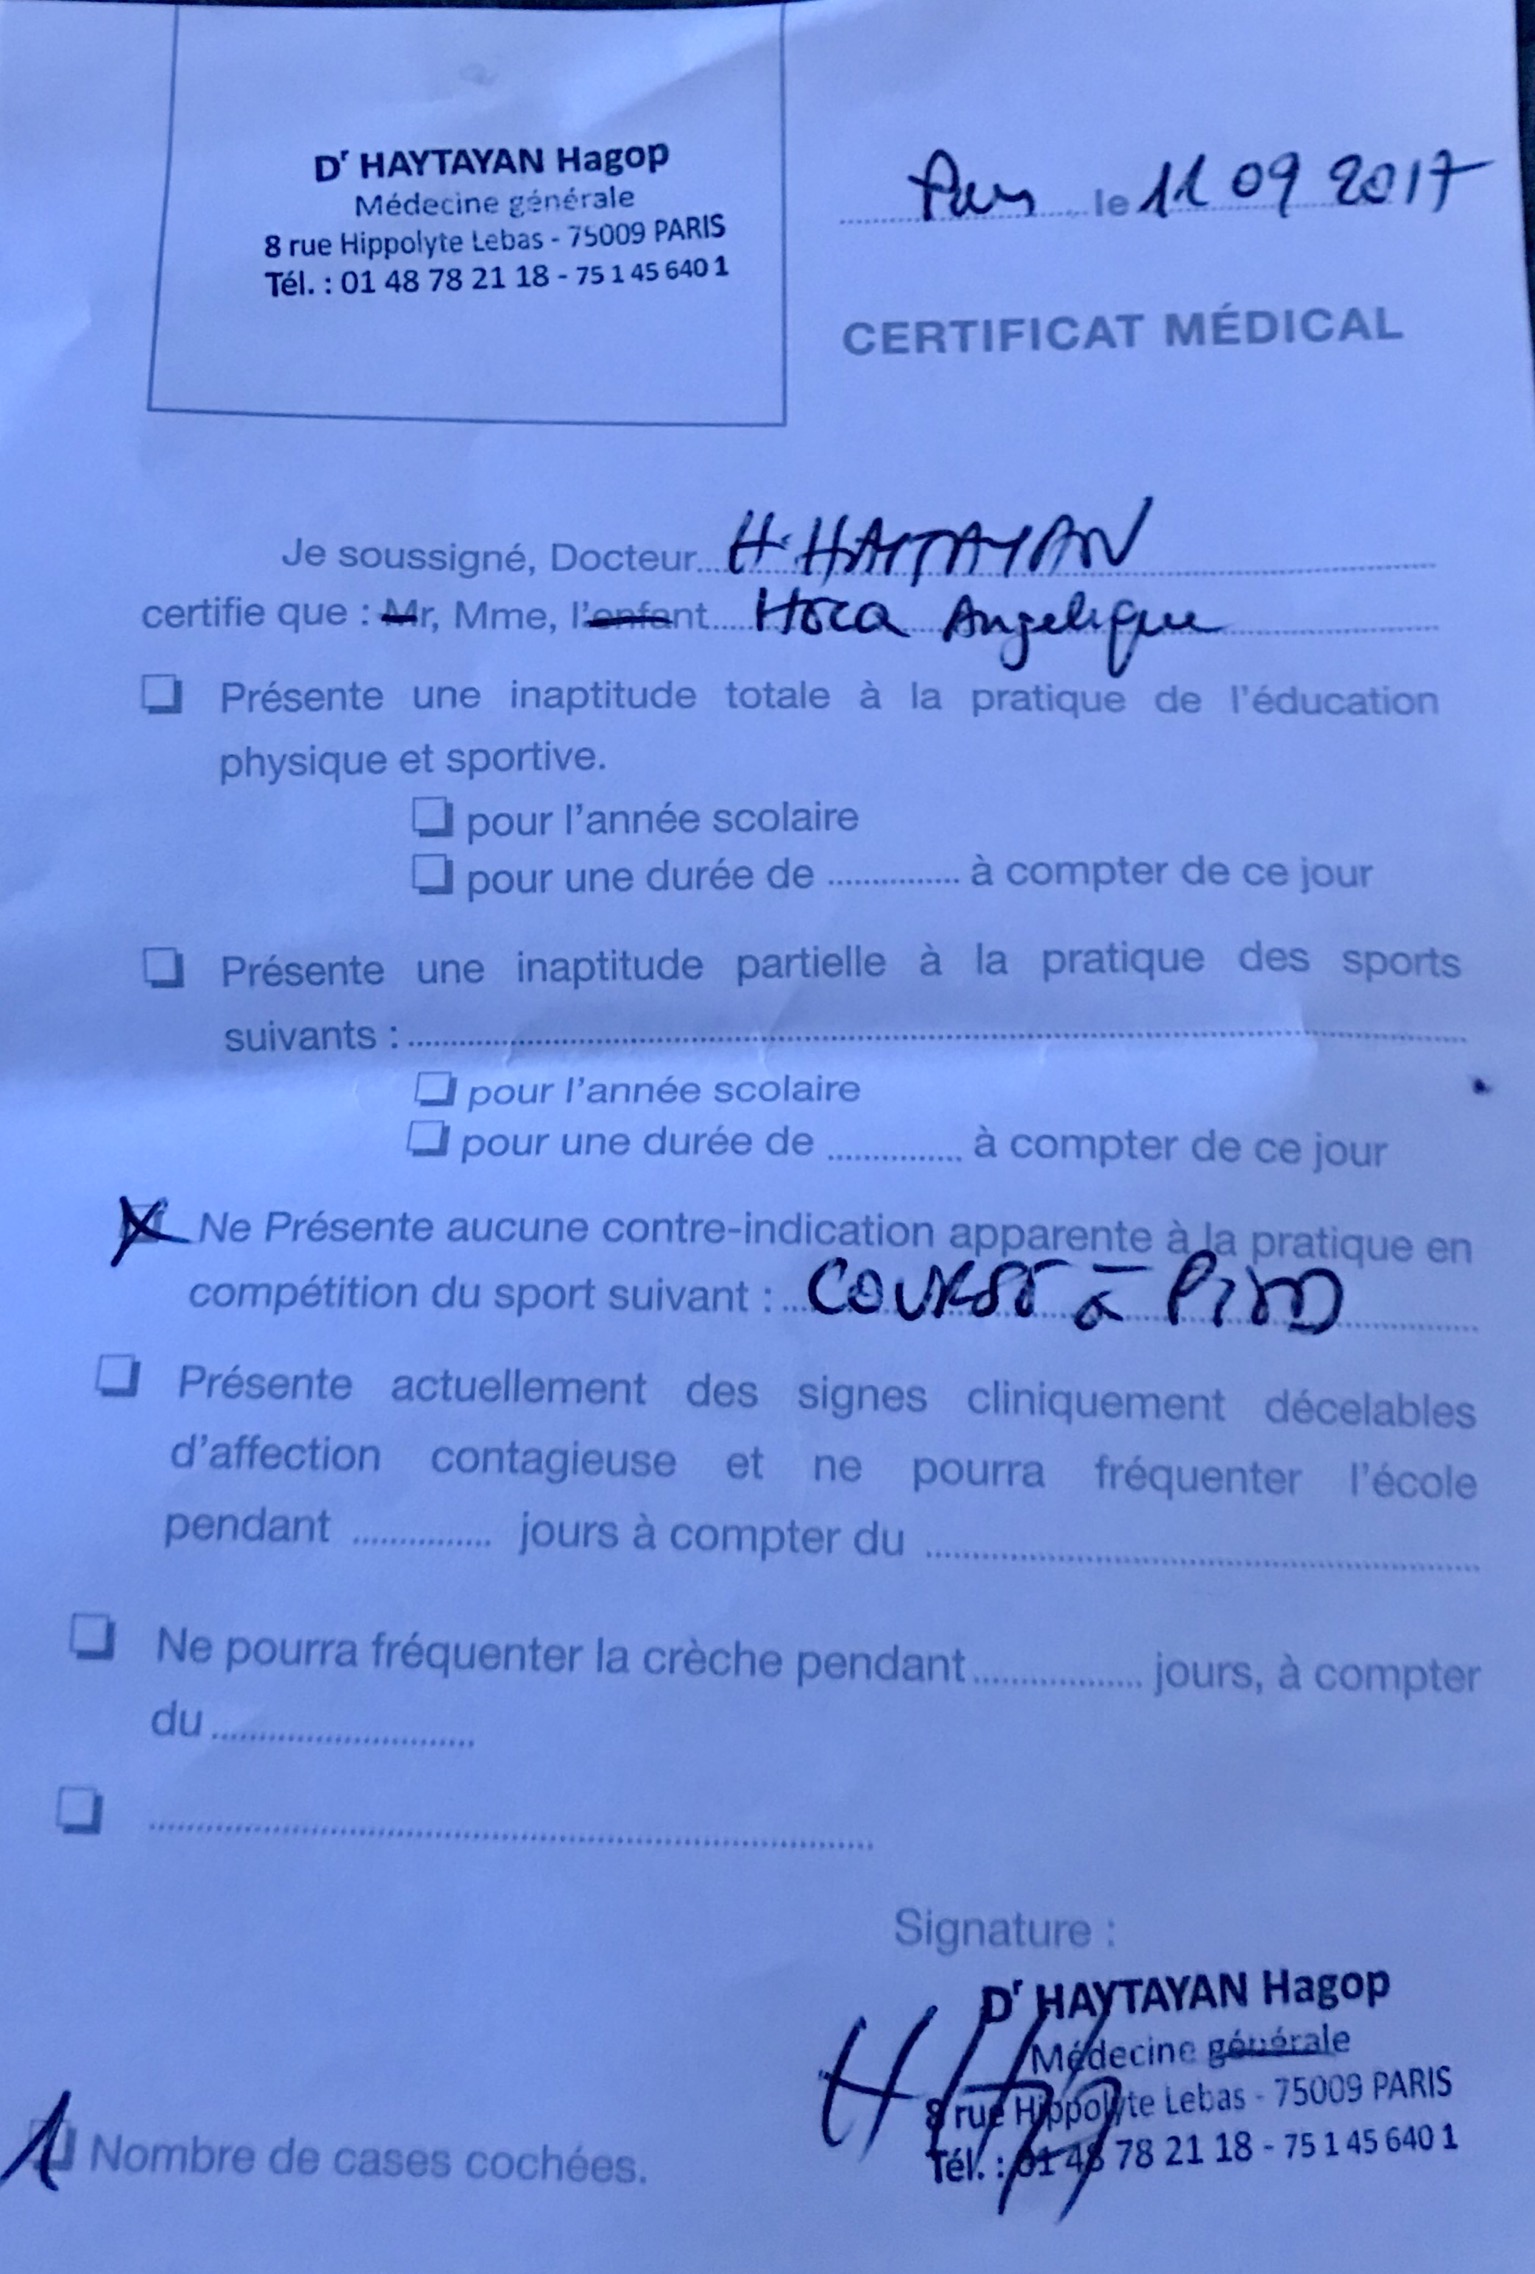 Dr HAYTAYAN Hagop
Médecine générale
8 rue Hippolyte Lebas - 75009 PARIS
Tél. : 01 48 78 21 18 - 75 1 45 640 1
Paris le 11 09 2017
CERTIFICAT MÉDICAL
Je soussigné, Docteur H. HAYTAYAN
certifie que : Mr, Mme, l'enfant Hoca Angelique
Présente une inaptitude totale à la pratique de l'éducation
physique et sportive.
pour l'année scolaire
pour une durée de ............... à compter de ce jour
Présente une inaptitude partielle à la pratique des sports
suivants :
pour l'année scolaire
pour une durée de ............... à compter de ce jour
X Ne Présente aucune contre-indication apparente à la pratique en
compétition du sport suivant : COURSE à PIED
Présente actuellement des signes cliniquement décelables
d'affection contagieuse et ne pourra fréquenter l'école
pendant ............... jours à compter du
Ne pourra fréquenter la crèche pendant ............... jours, à compter
du
Signature :
Dr HAYTAYAN Hagop
Médecine générale
8 rue Hippolyte Lebas - 75009 PARIS
Tél. : 01 48 78 21 18 - 75 1 45 640 1
1 Nombre de cases cochées.